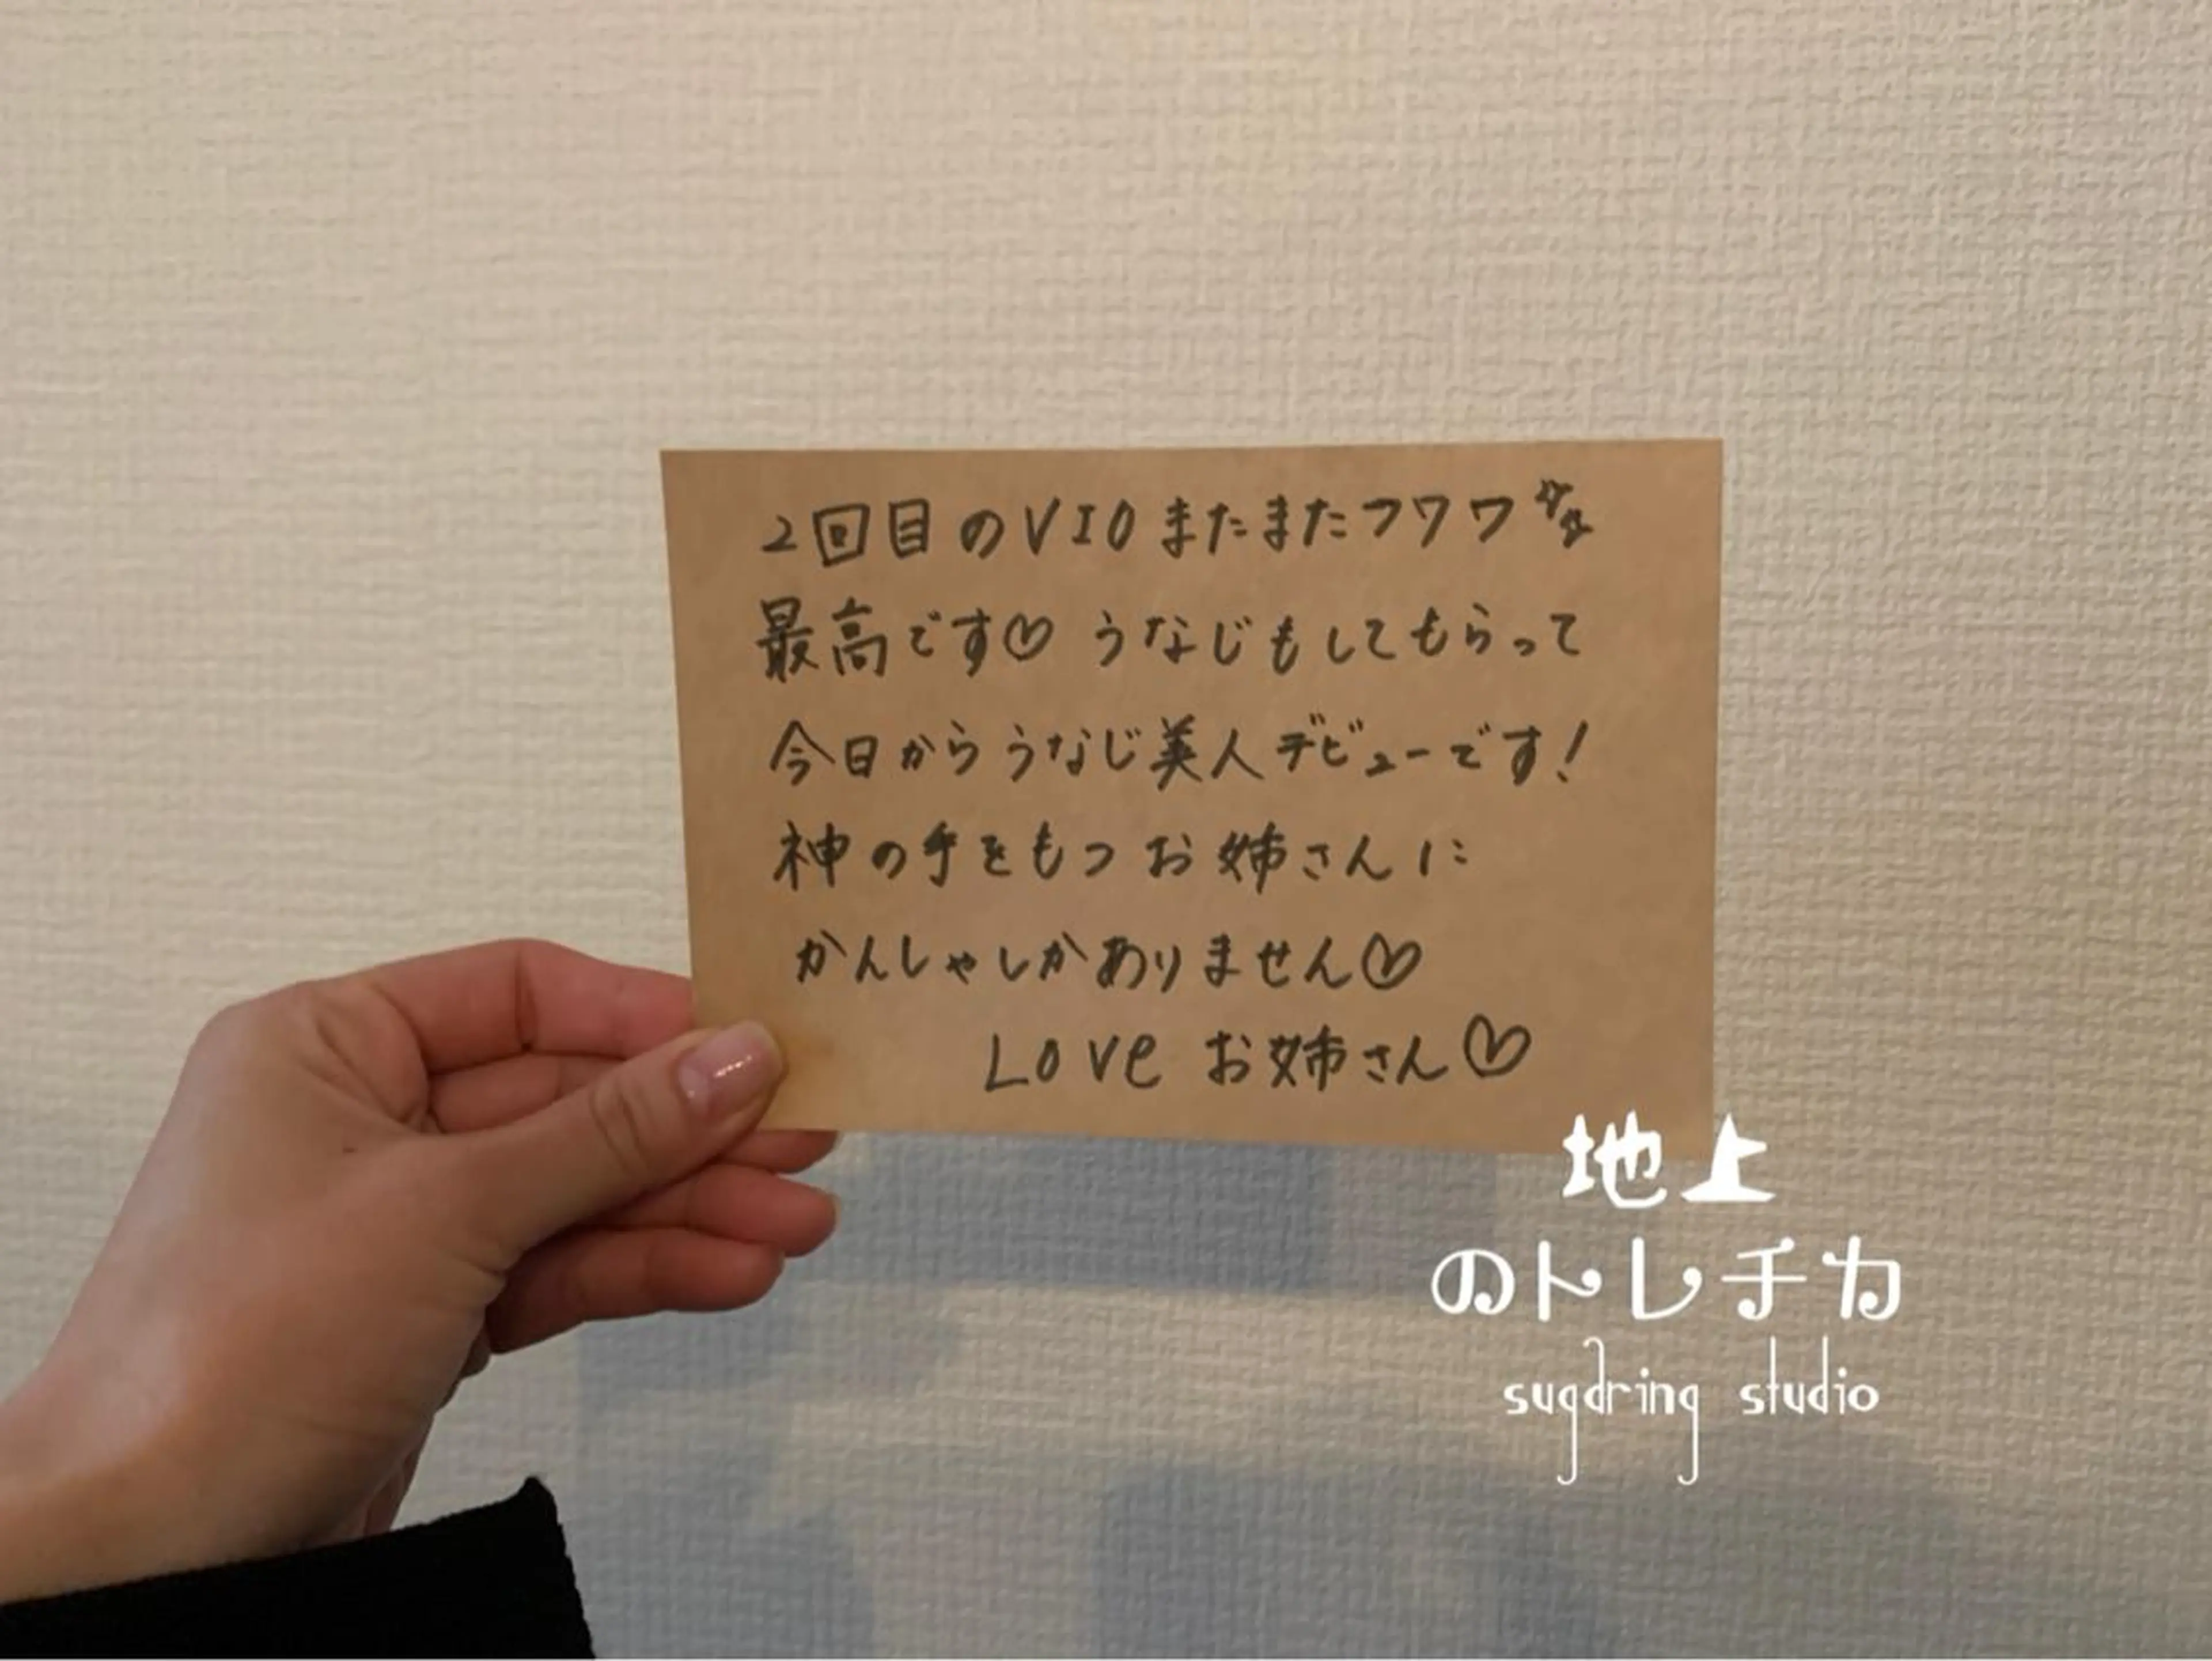 2回目のVIOまたまたフワワ
最高です♡ うなじもしてもらって
今日からうなじ美人デビューです!
神の手をもつお姉さんに
かんしゃしかありません♡
Love お姉さん♡
地上
のトレチカ
sugdring studio